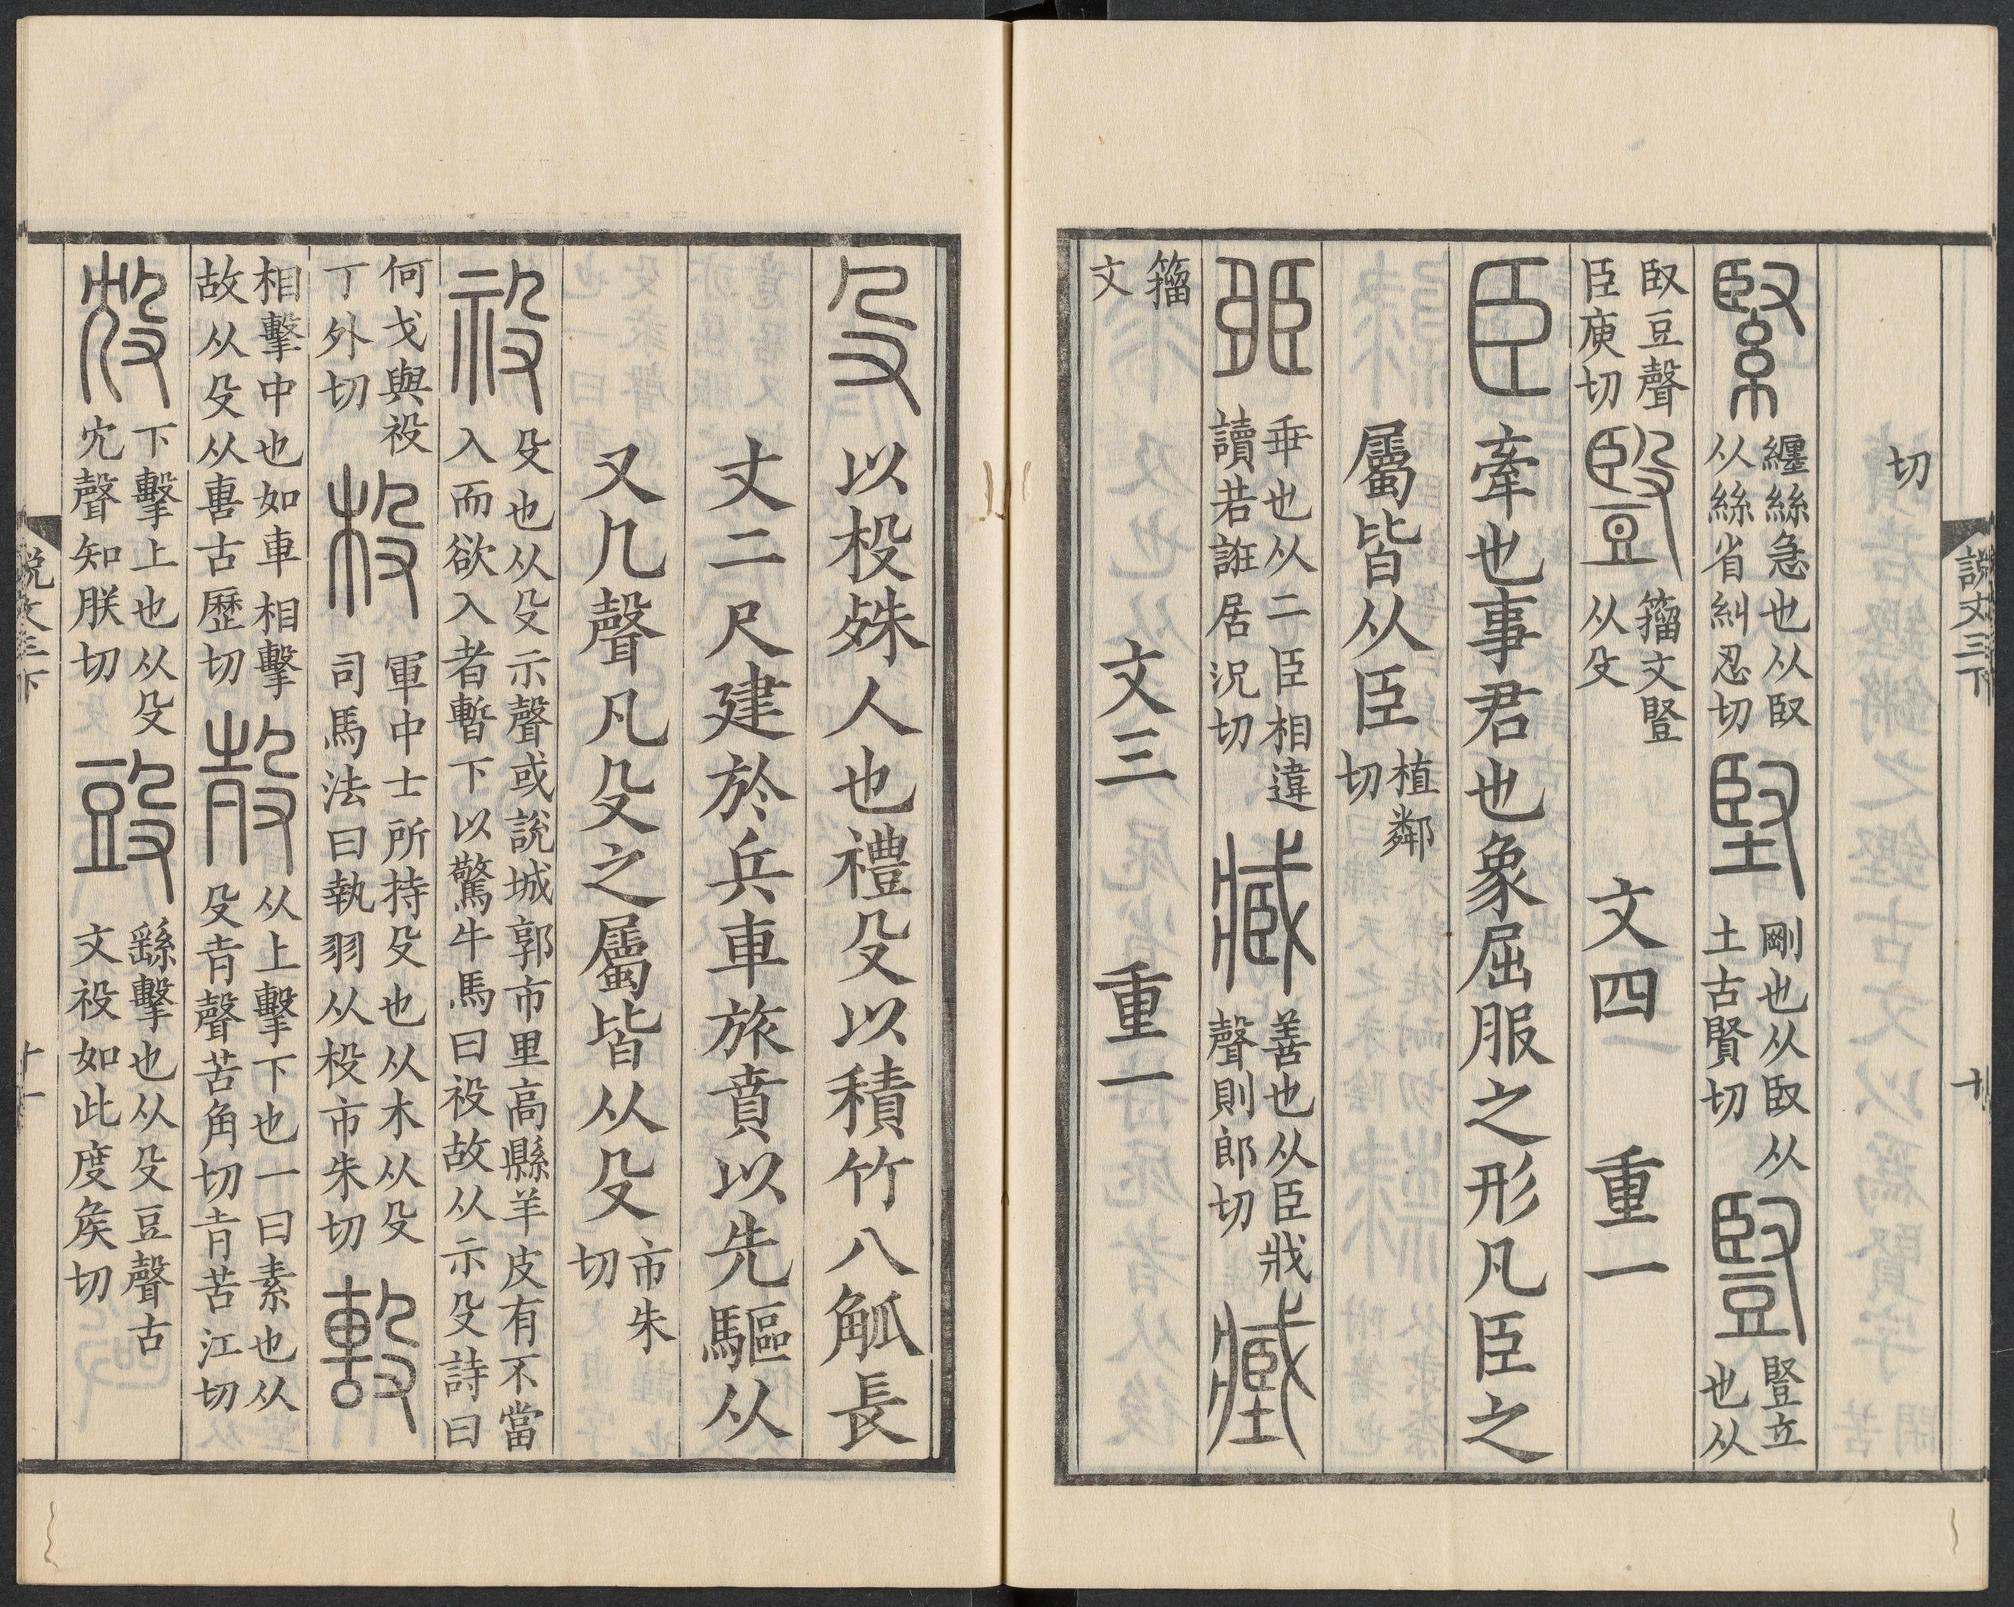 說文三下 十
切
緊纏絲急也从臤从絲省糾忍切堅剛也从臤从土古賢切豎豎立也从
臤豆聲臣庾切豎籀文豎从殳 文四 重一
臣牽也事君也象屈服之形凡臣之
屬皆从臣植鄰切
𦣦乖也从二臣相違讀若誑居況切臧善也从臣戕聲則郎切臧
籀文 文三 重一
殳以杸殊人也禮殳以積竹八觚長
丈二尺建於兵車旅賁以先驅从
又几聲凡殳之屬皆从殳市朱切
祋殳也从殳示聲或說城郭市里高縣羊皮有不當入而欲入者暫下以驚牛馬曰祋故从示殳詩曰
何戈與祋丁外切杸軍中士所持殳也从木从殳司馬法曰執羽从杸市朱切毄
相擊中也如車相擊故从殳从軎古歷切㱿从上擊下也一曰素也从殳𡉉聲苦角切𡉉苦江切
㱽下擊上也从殳冘聲知朕切𣪌繇擊也从殳豆聲古文祋如此度矦切
說文三下 十一